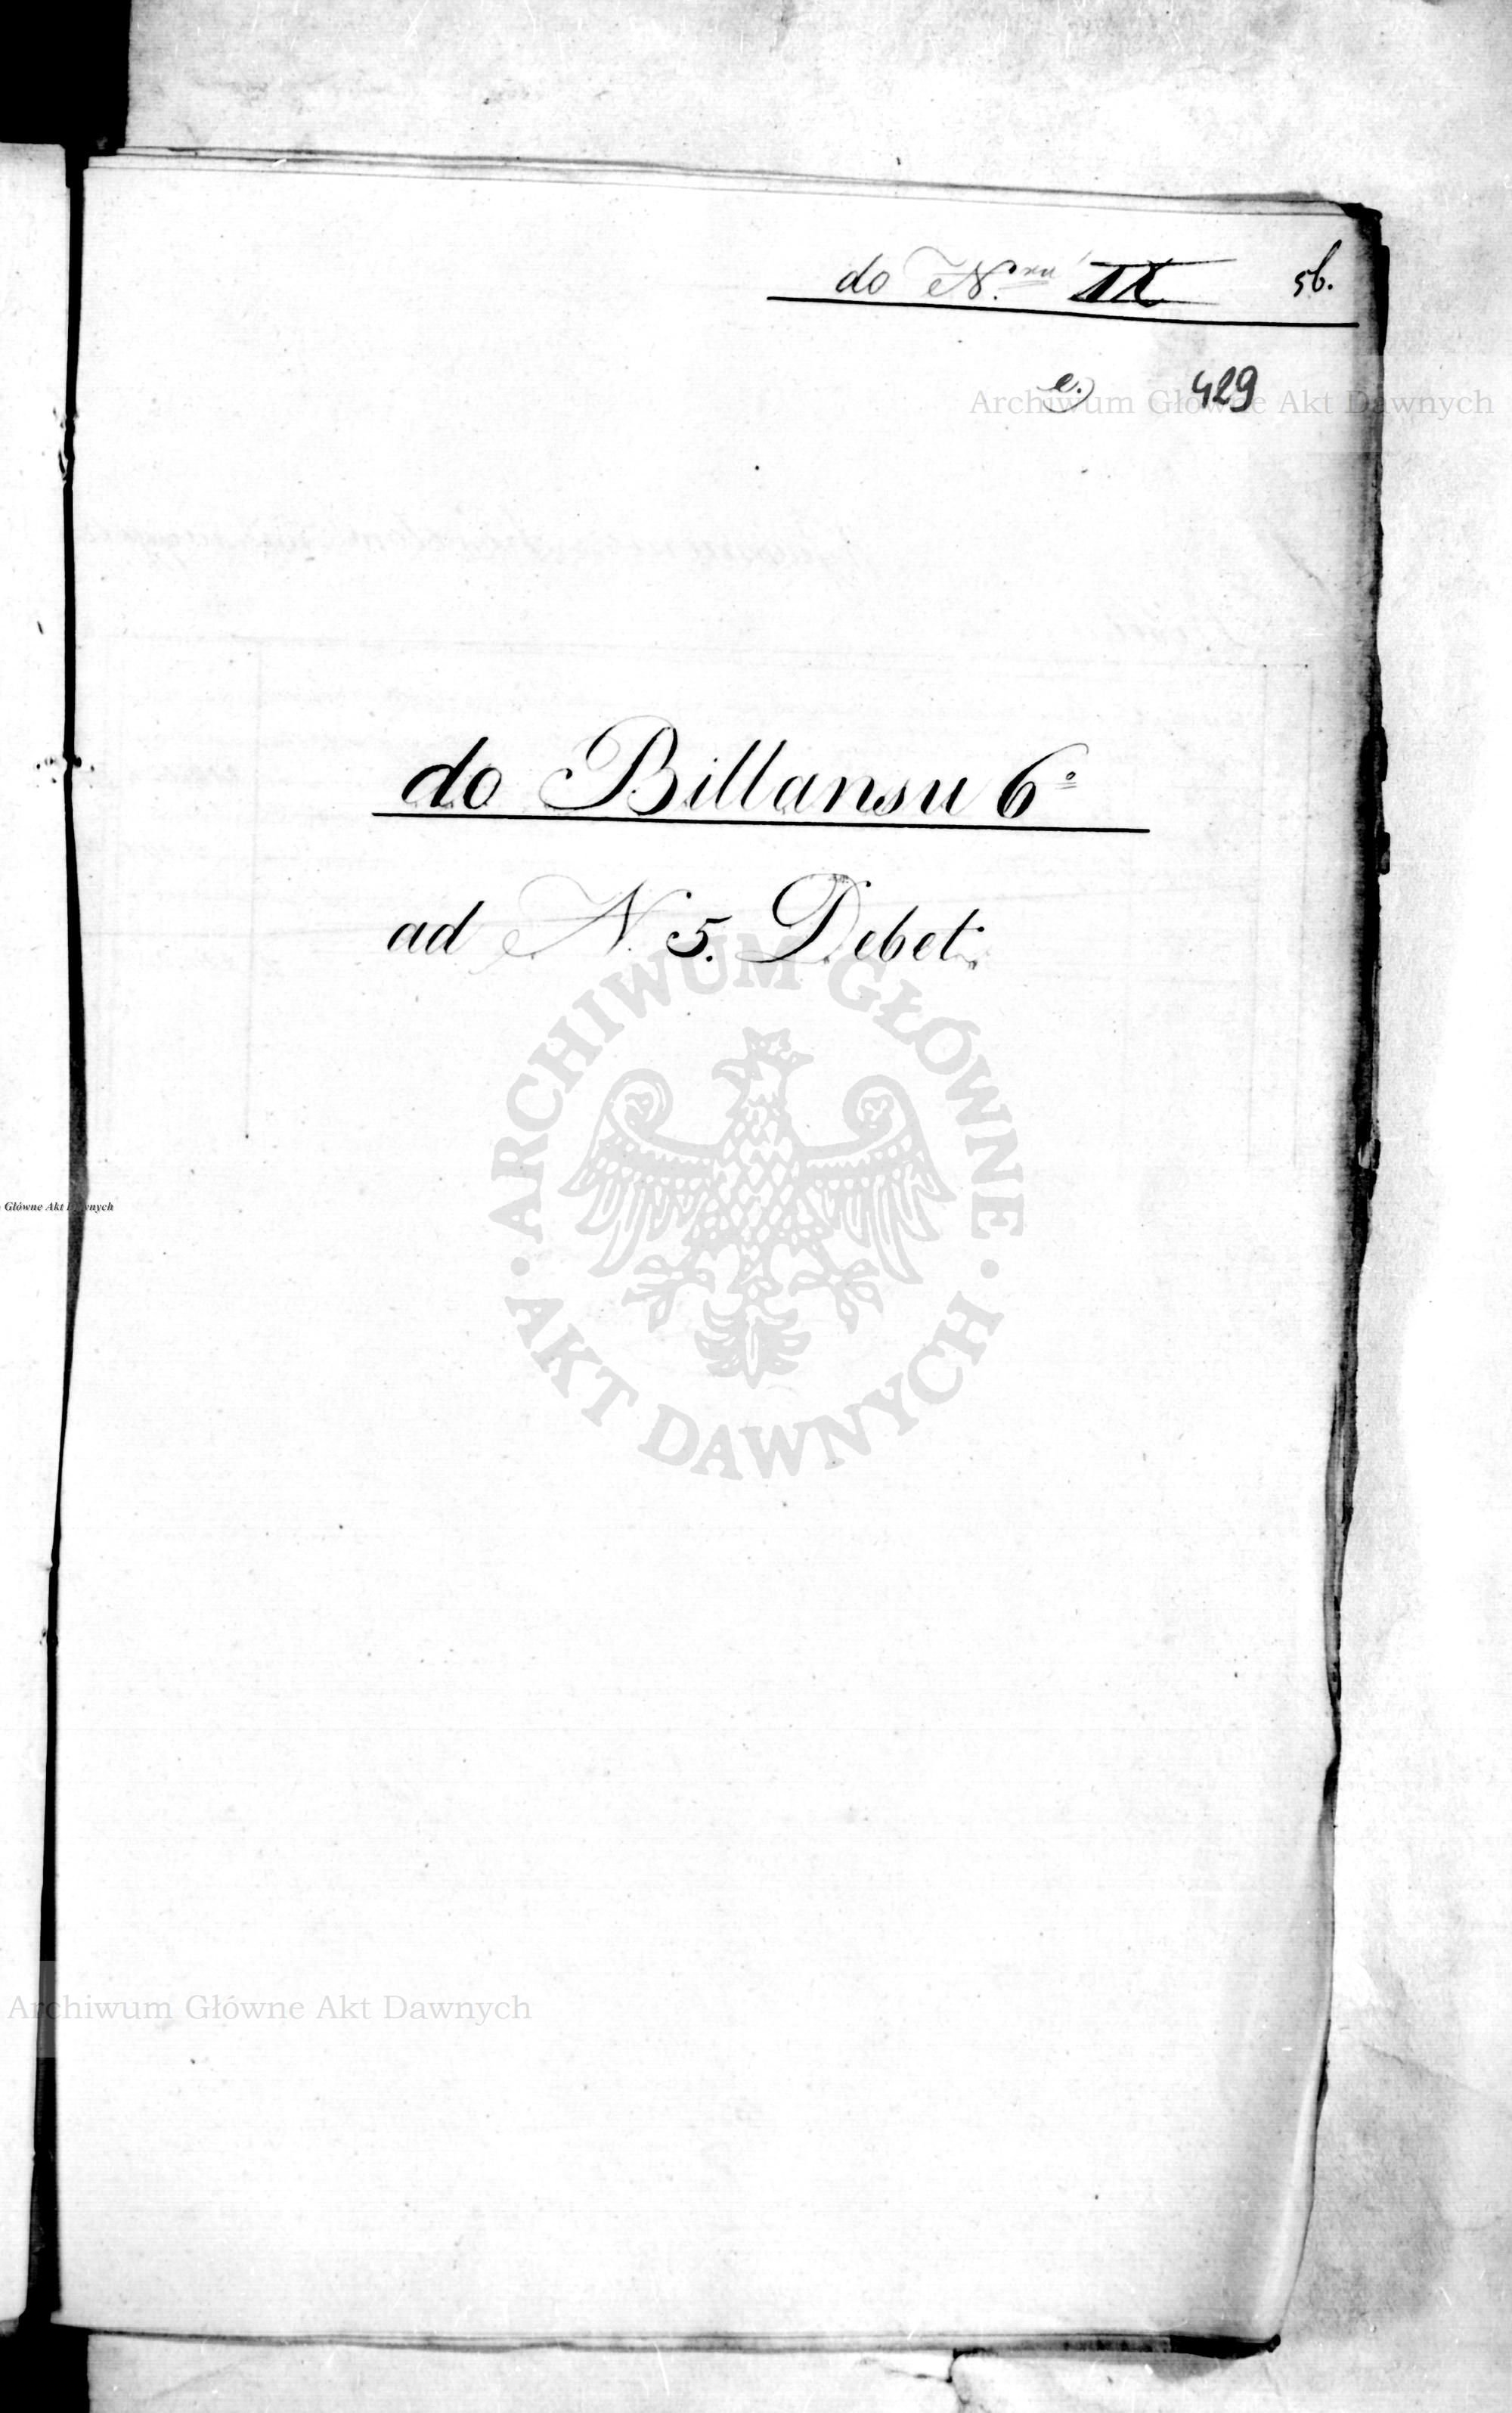 do N.ru IX 56.
e.) 429
Archiwum Główne Akt Dawnych
do Billansu 6o
ad N. 5. Debet.
ARCHIWUM GŁÓWNE
AKT DAWNYCH
Główne Akt Dawnych
Archiwum Główne Akt Dawnych